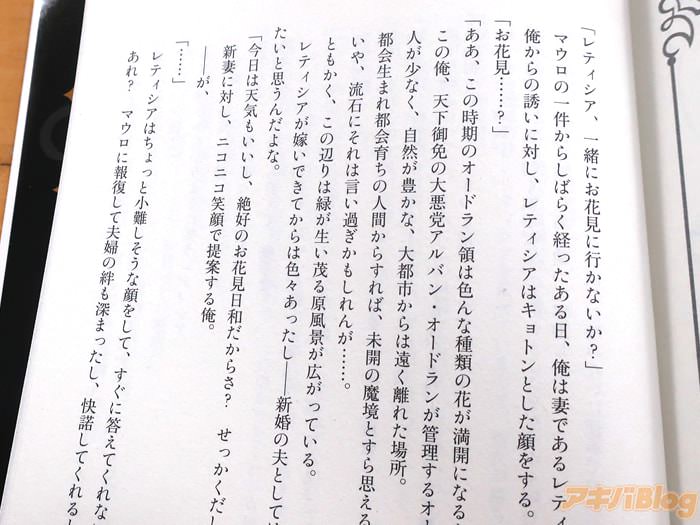 「レティシア、一緒にお花見に行かないか？」
マウロの一件からしばらく経ったある日、俺は妻であるレティ
俺からの誘いに対し、レティシアはキョトンとした顔をする。
「お花見……？」
「ああ、この時期のオードラン領は色んな種類の花が満開になる
この俺、天下御免の大悪党アルバン・オードランが管理するオー
人が少なく、自然が豊かな、大都市からは遠く離れた場所。
都会生まれ都会育ちの人間からすれば、未開の魔境とすら思える
いや、流石にそれは言い過ぎかもしれんが……。
ともかく、この辺りは緑が生い茂る原風景が広がっている。
レティシアが嫁いできてからは色々あったし――新婚の夫としては
たいと思うんだよな。
「今日は天気もいいし、絶好のお花見日和だからさ？　せっかくだし
新妻に対し、ニコニコ笑顔で提案する俺。
――が、
「……」
レティシアはちょっと小難しそうな顔をして、すぐに答えてくれな
あれ？　マウロに報復して夫婦の絆も深まったし、快諾してくれる
アキバBlog